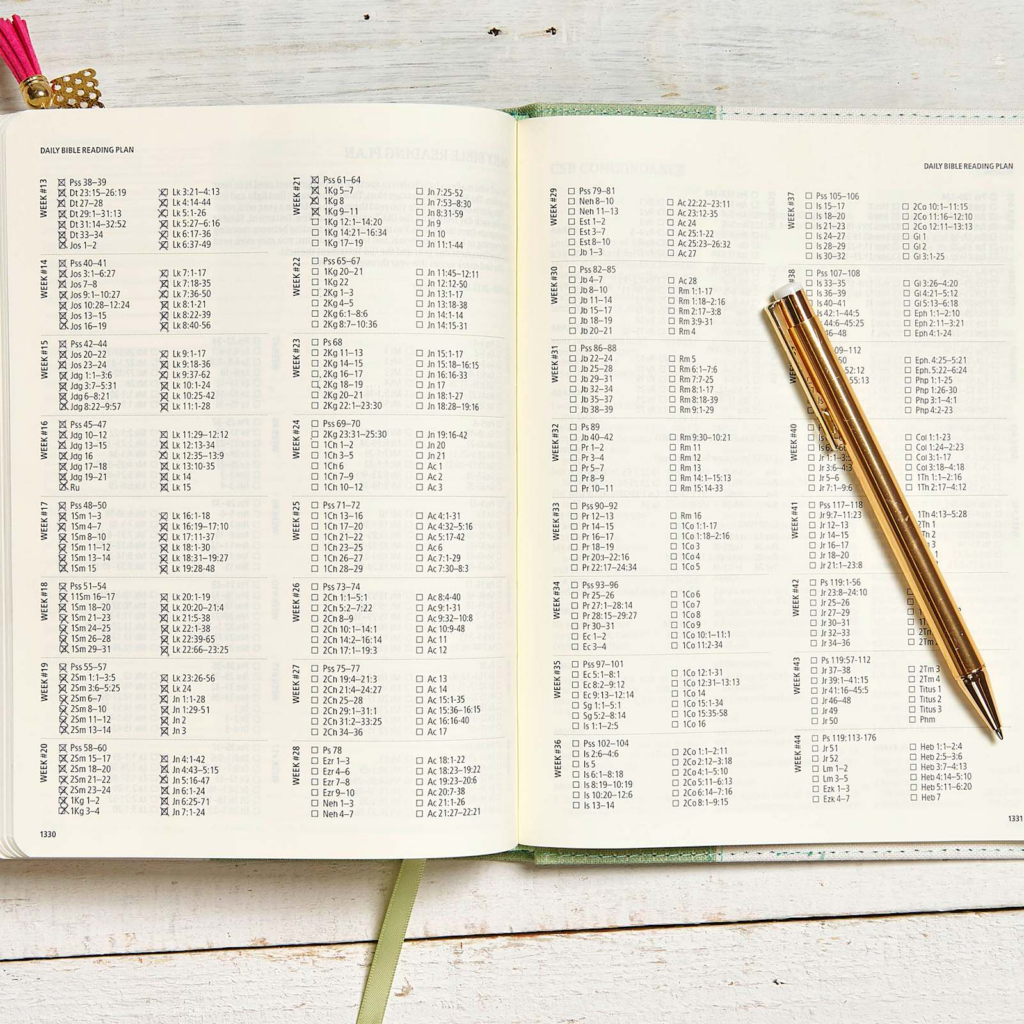 DAILY BIBLE READING PLAN
WEEK #13
Pss 38–39
Dt 23:15–26:19
Dt 27–28
Dt 29:1–31:13
Dt 31:14–32:52
Dt 33–34
Jos 1–2
Lk 3:21-4:13
Lk 4:14-44
Lk 5:1-26
Lk 5:27-6:16
Lk 6:17-36
Lk 6:37-49
WEEK #14
Pss 40–41
Jos 3:1–6:27
Jos 7–8
Jos 9:1–10:27
Jos 10:28–12:24
Jos 13–15
Jos 16–19
Lk 7:1-17
Lk 7:18-35
Lk 7:36-50
Lk 8:1-21
Lk 8:22-39
Lk 8:40-56
WEEK #15
Pss 42–44
Jos 20–22
Jos 23–24
Jdg 1:1–3:6
Jdg 3:7–5:31
Jdg 6–8:21
Jdg 8:22–9:57
Lk 9:1-17
Lk 9:18-36
Lk 9:37-62
Lk 10:1-24
Lk 10:25-42
Lk 11:1-28
WEEK #16
Pss 45–47
Jdg 10–12
Jdg 13–15
Jdg 16
Jdg 17–18
Jdg 19–21
Ru
Lk 11:29–12:12
Lk 12:13-34
Lk 12:35–13:9
Lk 13:10-35
Lk 14
Lk 15
WEEK #17
Pss 48–50
1Sm 1–3
1Sm 4–7
1Sm 8–10
1Sm 11–12
1Sm 13–14
1Sm 15
Lk 16:1-18
Lk 16:19–17:10
Lk 17:11-37
Lk 18:1-30
Lk 18:31–19:27
Lk 19:28-48
WEEK #18
Pss 51–54
11Sm 16–17
1Sm 18–20
1Sm 21–23
1Sm 24–25
1Sm 26–28
1Sm 29–31
Lk 20:1-19
Lk 20:20–21:4
Lk 21:5-38
Lk 22:1-38
Lk 22:39-65
Lk 22:66–23:25
WEEK #19
Pss 55–57
2Sm 1:1–3:5
2Sm 3:6–5:25
2Sm 6–7
2Sm 8–10
2Sm 11–12
2Sm 13–14
Lk 23:26-56
Lk 24
Jn 1:1-28
Jn 1:29-51
Jn 2
Jn 3
WEEK #20
Pss 58–60
2Sm 15–17
2Sm 18–20
2Sm 21–22
2Sm 23–24
1Kg 1–2
1Kg 3–4
Jn 4:1-42
Jn 4:43–5:15
Jn 5:16-47
Jn 6:1-24
Jn 6:25-71
Jn 7:1-24
1330
WEEK #21
Pss 61–64
1Kg 5–7
1Kg 8
1Kg 9–11
1Kg 12:1–14:20
1Kg 14:21–16:34
1Kg 17–19
Jn 7:25-52
Jn 7:53–8:30
Jn 8:31-59
Jn 9
Jn 10
Jn 11:1-44
WEEK #22
Pss 65–67
1Kg 20–21
1Kg 22
2Kg 1–3
2Kg 4–5
2Kg 6:1–8:6
2Kg 8:7–10:36
Jn 11:45–12:11
Jn 12:12-50
Jn 13:1-17
Jn 13:18-38
Jn 14:1-14
Jn 14:15-31
WEEK #23
Ps 68
2Kg 11–13
2Kg 14–15
2Kg 16–17
2Kg 18–19
2Kg 20–21
2Kg 22:1–23:30
Jn 15:1-17
Jn 15:18–16:15
Jn 16:16-33
Jn 17
Jn 18:1-27
Jn 18:28–19:16
WEEK #24
Pss 69–70
2Kg 23:31–25:30
1Ch 1–2
1Ch 3–5
1Ch 6
1Ch 7–9
1Ch 10–12
Jn 19:16-42
Jn 20
Jn 21
Ac 1
Ac 2
Ac 3
WEEK #25
Pss 71–72
1Ch 13–16
1Ch 17–20
1Ch 21–22
1Ch 23–25
1Ch 26–27
1Ch 28–29
Ac 4:1-31
Ac 4:32–5:16
Ac 5:17-42
Ac 6
Ac 7:1-29
Ac 7:30–8:3
WEEK #26
Pss 73–74
2Ch 1:1–5:1
2Ch 5:2–7:22
2Ch 8–9
2Ch 10:1–14:1
2Ch 14:2–16:14
2Ch 17:1–19:3
Ac 8:4-40
Ac 9:1-31
Ac 9:32–10:8
Ac 10:9-48
Ac 11
Ac 12
WEEK #27
Pss 75–77
2Ch 19:4–21:3
2Ch 21:4–24:27
2Ch 25–28
2Ch 29:1–31:1
2Ch 31:2–33:25
2Ch 34–36
Ac 13
Ac 14
Ac 15:1-35
Ac 15:36–16:15
Ac 16:16-40
Ac 17
WEEK #28
Ps 78
Ezr 1–3
Ezr 4–6
Ezr 7–8
Ezr 9–10
Neh 1–3
Neh 4–7
Ac 18:1-22
Ac 18:23–19:22
Ac 19:23–20:6
Ac 20:7-38
Ac 21:1-26
Ac 21:27–22:21
DAILY BIBLE READING PLAN
WEEK #29
Pss 79–81
Neh 8–10
Neh 11–13
Est 1–2
Est 3–7
Est 8–10
Jb 1–3
Ac 22:22–23:11
Ac 23:12-35
Ac 24
Ac 25:1-22
Ac 25:23–26:32
Ac 27
WEEK #30
Pss 82–85
Jb 4–7
Jb 8–10
Jb 11–14
Jb 15–17
Jb 18–19
Jb 20–21
Ac 28
Rm 1:1-17
Rm 1:18–2:16
Rm 2:17–3:8
Rm 3:9-31
Rm 4
WEEK #31
Pss 86–88
Jb 22–24
Jb 25–28
Jb 29–31
Jb 32–34
Jb 35–37
Jb 38–39
Rm 5
Rm 6:1–7:6
Rm 7:7-25
Rm 8:1-17
Rm 8:18-39
Rm 9:1-29
WEEK #32
Ps 89
Jb 40–42
Pr 1–2
Pr 3–4
Pr 5–7
Pr 8–9
Pr 10–11
Rm 9:30–10:21
Rm 11
Rm 12
Rm 13
Rm 14:1–15:13
Rm 15:14-33
WEEK #33
Pss 90–92
Pr 12–13
Pr 14–15
Pr 16–17
Pr 18–19
Pr 20:–22:16
Pr 22:17–24:34
Rm 16
1Co 1:1-17
1Co 1:18–2:16
1Co 3
1Co 4
1Co 5
WEEK #34
Pss 93–96
Pr 25–26
Pr 27:1–28:14
Pr 28:15–29:27
Pr 30–31
Ec 1–2
Ec 3–4
1Co 6
1Co 7
1Co 8
1Co 9
1Co 10:1–11:1
1Co 11:2-34
WEEK #35
Pss 97–101
Ec 5:1–8:1
Ec 8:2–9:12
Ec 9:13–12:14
Sg 1:1–5:1
Sg 5:2–8:14
Is 1:1–2:5
1Co 12:1-31
1Co 12:31–13:13
1Co 14
1Co 15:1-34
1Co 15:35-58
1Co 16
WEEK #36
Pss 102–104
Is 2:6–4:6
Is 5
Is 6:1–8:18
Is 8:19–10:19
Is 10:20–12:6
Is 13–14
2Co 1:1–2:11
2Co 2:12–3:18
2Co 4:1–5:10
2Co 5:11–6:13
2Co 6:14–7:16
2Co 8:1–9:15
WEEK #37
Pss 105–106
Is 15–17
Is 18–20
Is 21–23
Is 24–27
Is 28–29
Is 30–32
2Co 10:1–11:15
2Co 11:16–12:10
2Co 12:11–13:13
Gl 1
Gl 2
Gl 3:1-25
#38
Pss 107–108
Is 33–35
Is 36–39
Is 40–41
Is 42:1–44:5
44:6–45:25
46–48
Gl 3:26–4:20
Gl 4:21–5:12
Gl 5:13–6:18
Eph 1:1–2:10
Eph 2:11–3:21
Eph 4:1-24
109–112
52:12
55:13
Eph. 4:25–5:21
Eph. 5:22–6:24
Php 1:1-25
Php 1:26-30
Php 3:1–4:1
Php 4:2-23
WEEK #40
Jr 1:1–3:5
Jr 3:6–4:3
Jr 5–6
Jr 7:1–9:6
Col 1:1-23
Col 1:24–2:23
Col 3:1-17
Col 3:18–4:18
1Th 1:1–2:16
1Th 2:17–4:12
WEEK #41
Pss 117–118
Jr 9:7–11:23
Jr 12–13
Jr 14–15
Jr 16–17
Jr 18–20
Jr 21:1–23:8
1Th 4:13–5:28
2Th 1
WEEK #42
Ps 119:1-56
Jr 23:8–24:10
Jr 25–26
Jr 27–29
Jr 30–31
Jr 32–33
Jr 34–36
WEEK #43
Ps 119:57-112
Jr 37–38
Jr 39:1–41:15
Jr 41:16–45:5
Jr 46–48
Jr 49
Jr 50
2Tm 3
2Tm 4
Titus 1
Titus 2
Titus 3
Phm
WEEK #44
Ps 119:113-176
Jr 51
Jr 52
Lm 1–2
Lm 3–5
Ezk 1–3
Ezk 4–7
Heb 1:1–2:4
Heb 2:5–3:6
Heb 3:7–4:13
Heb 4:14–5:10
Heb 5:11–6:20
Heb 7
1331